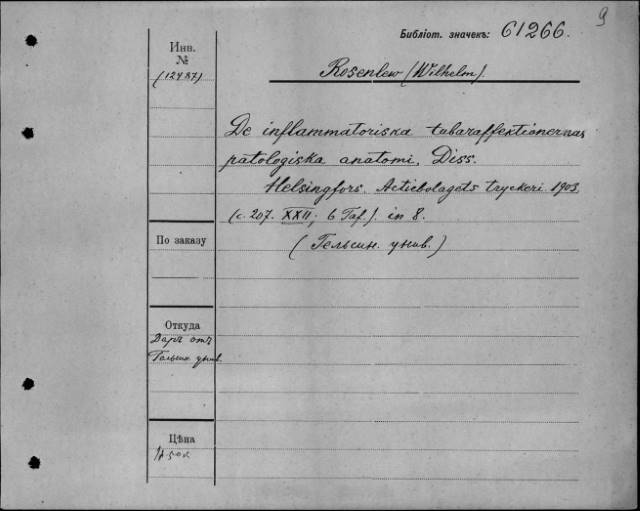 9
Библіот. значекъ: 61266.
Инв.
№
(12487)
Rosenlew (Wilhelm).
De inflammatoriska tubaraffektionernas
patologiska anatomi. Diss.
Helsingfors. Actiebolagets tryckeri 1903.
(c. 207. XXII; 6 Taf.). in 8.
По заказу
(Гельсин. унив.)
Откуда
Даръ отъ
Гельсин унив.
Цѣна